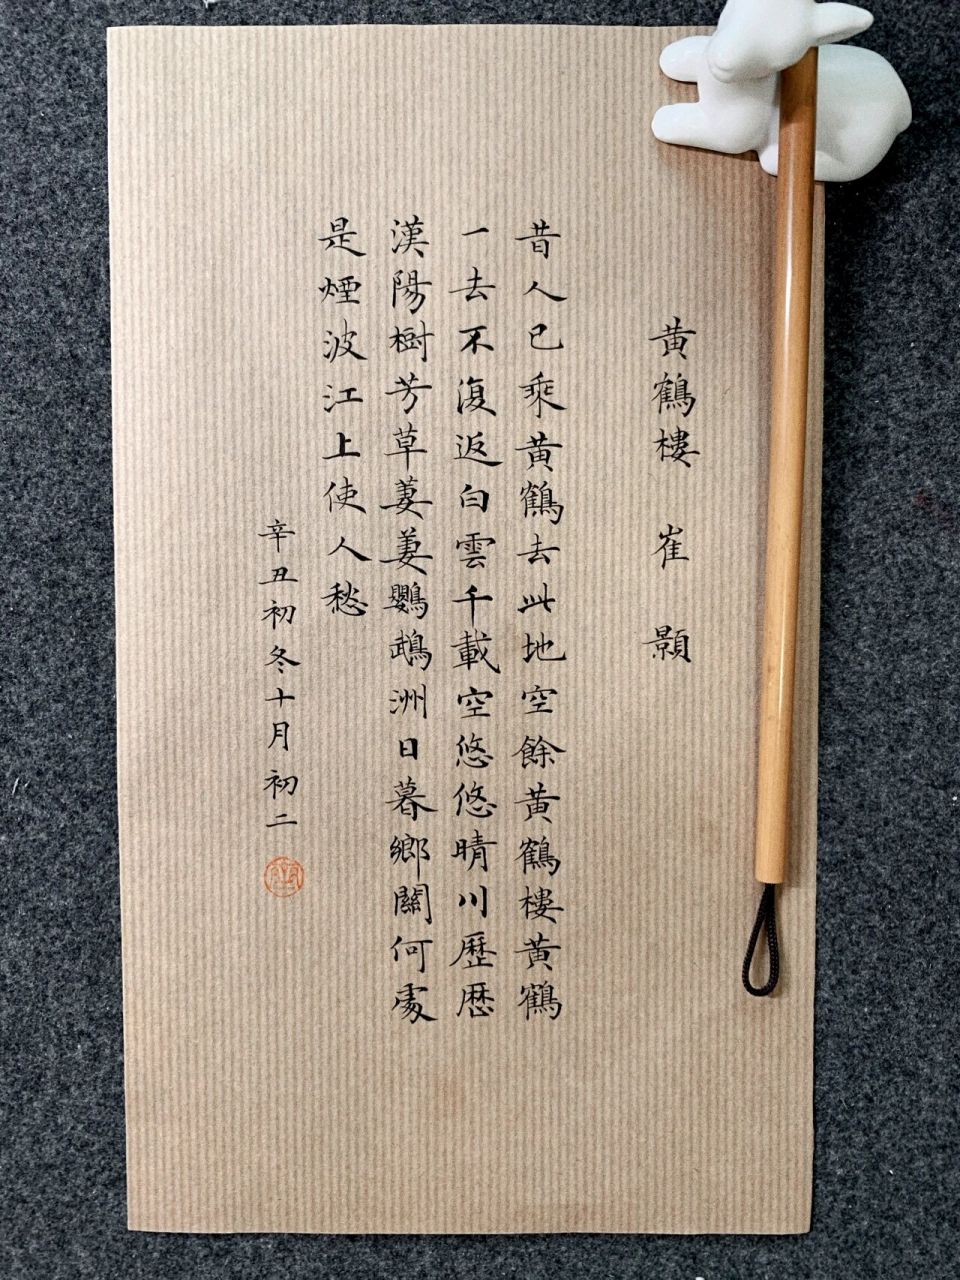 黄鶴樓 崔顥
昔人已乘黄鶴去此地空餘黄鶴樓黄鶴
一去不復返白雲千載空悠悠晴川歷歷
漢陽樹芳草萋萋鸚鵡洲日暮鄉關何處
是煙波江上使人愁
辛丑初冬十月初二